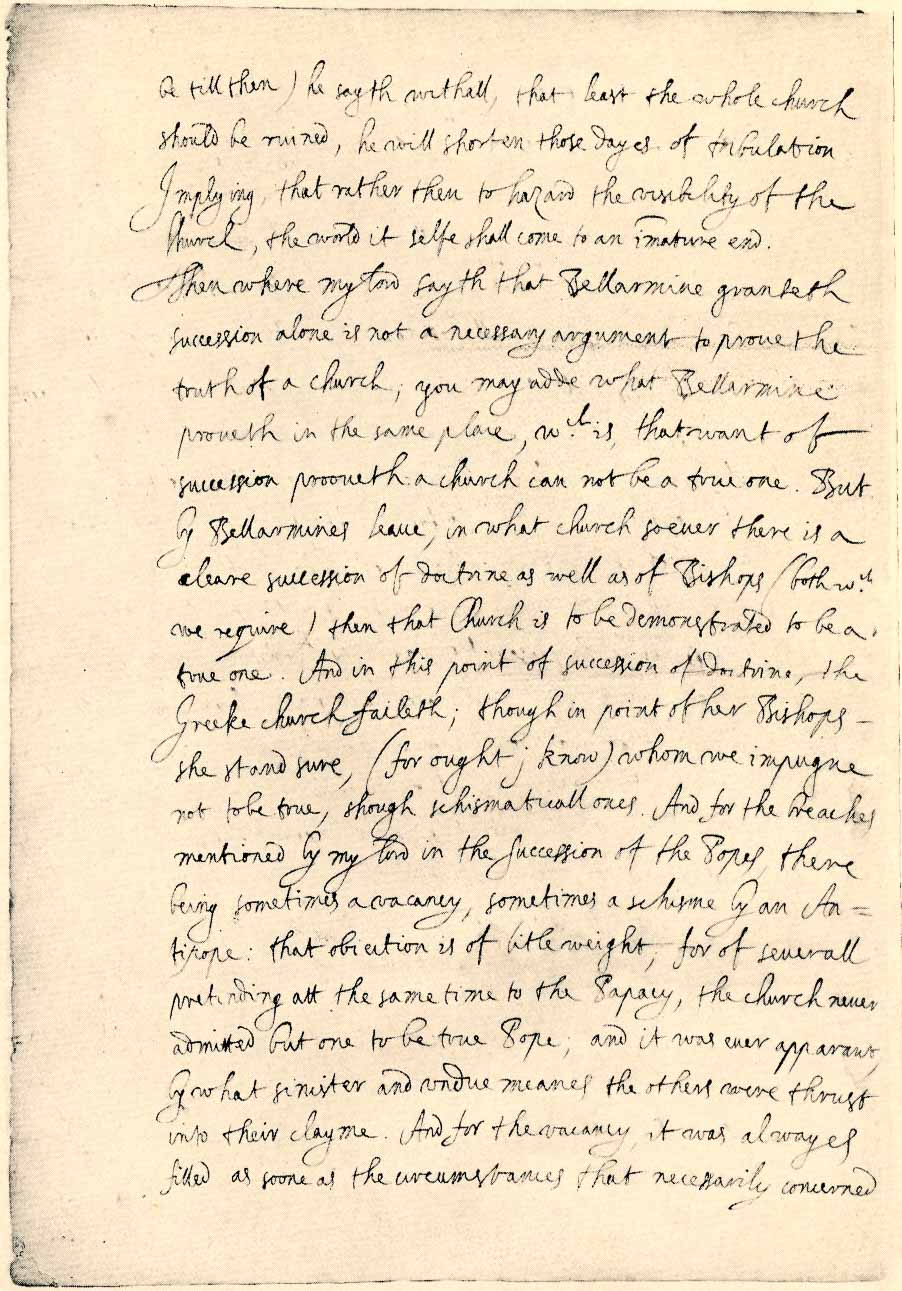 be till then) he sayth withall, that least the whole church
should be ruined, he will shorten those dayes of tribulation
Implying, that rather then to hazard the visibility of the
Church, the world it selfe shall come to an im̄ature end.
Then where my lord sayth that Bellarmine granteth
succession alone is not a necessary argument to proue the
truth of a church; you may adde what Bellarmine
proueth in the same place, wch. is, that want of
succession prooueth a church can not be a true one. But
by Bellarmines leaue, in what church soeuer there is a
cleare succession of doctrine as well as of Bishops (both wch.
we require) then that Church is to be demonstrated to be a
true one. And in this point of succession of doctrine, the
Greeke church faileth; though in point of her Bishops -
she stand sure, (for ought j know) whom we impugne
not to be true, though schismaticall ones. And for the breaches
mentioned by my lord in the succession of the Popes, there
being sometimes a vacancy, sometimes a schisme by an An=
tipope: that obiection is of litle weight, for of seuerall
pretending att the same time to the Papacy, the church neuer
admitted but one to be true Pope; and it was euer apparant,
by what sinister and vndue meanes the others were thrust
into their clayme. And for the vacancy, it was alwayes
filled as soone as the circumstances that necessarily concerned